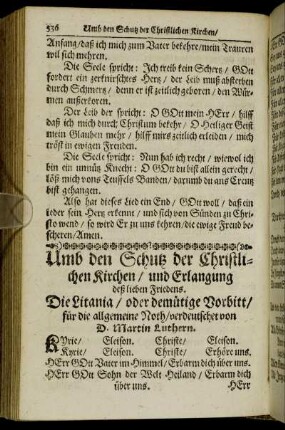 536 Umb den Schutz der Christlichen Kirchen/
Anfang/ daß ich mich zum Vater bekehre/ mein Trauren
wil sich mehren.
Die Seele spricht: Ich treib kein Schertz/ GOtt
fordert ein zerknirschtes Hertz/ der Leib muß absterben
durch Schmertz/ denn er ist zeitlich geboren/ den Wür-
men außerkoren.
Der Leib der spricht: O GOtt mein HErr/ hilff
daß ich mich durch Christum bekehr/ O Heiliger Geist
mein Glauben mehr/ hilff mirs zeitlich erleiden/ mich
tröst in ewigen Freuden.
Die Seele spricht: Nun hab ich recht/ wiewol ich
bin ein unnütz Knecht: O GOtt du bist allein gerecht/
löß mich von's Teuffels Banden/ darumb du ans Creutz
bist gehangen.
Also hat dieses Lied ein End/ GOtt woll/ daß ein
jeder sein Hertz erkenn/ und sich von Sünden zu Chri-
sto wend/ so wird Er zu uns kehren/ die ewige Freud be-
scheren/ Amen.
Umb den Schutz der Christli-
chen Kirchen/ und Erlangung
deß lieben Friedens.
Die Litania/ oder demütige Vorbitt/
für die allgemeine Noth/ verdeutschet von
D. Martin Luthern.
KYrie/ Eleison. Christe/ Eleison.
Kyrie/ Eleison. Christe/ Erhöre uns.
HErr GOtt Vater im Himmel/ Erbarm dich über uns.
HErr GOtt Sohn der Welt Heiland/ Erbarm dich
über uns. HErr